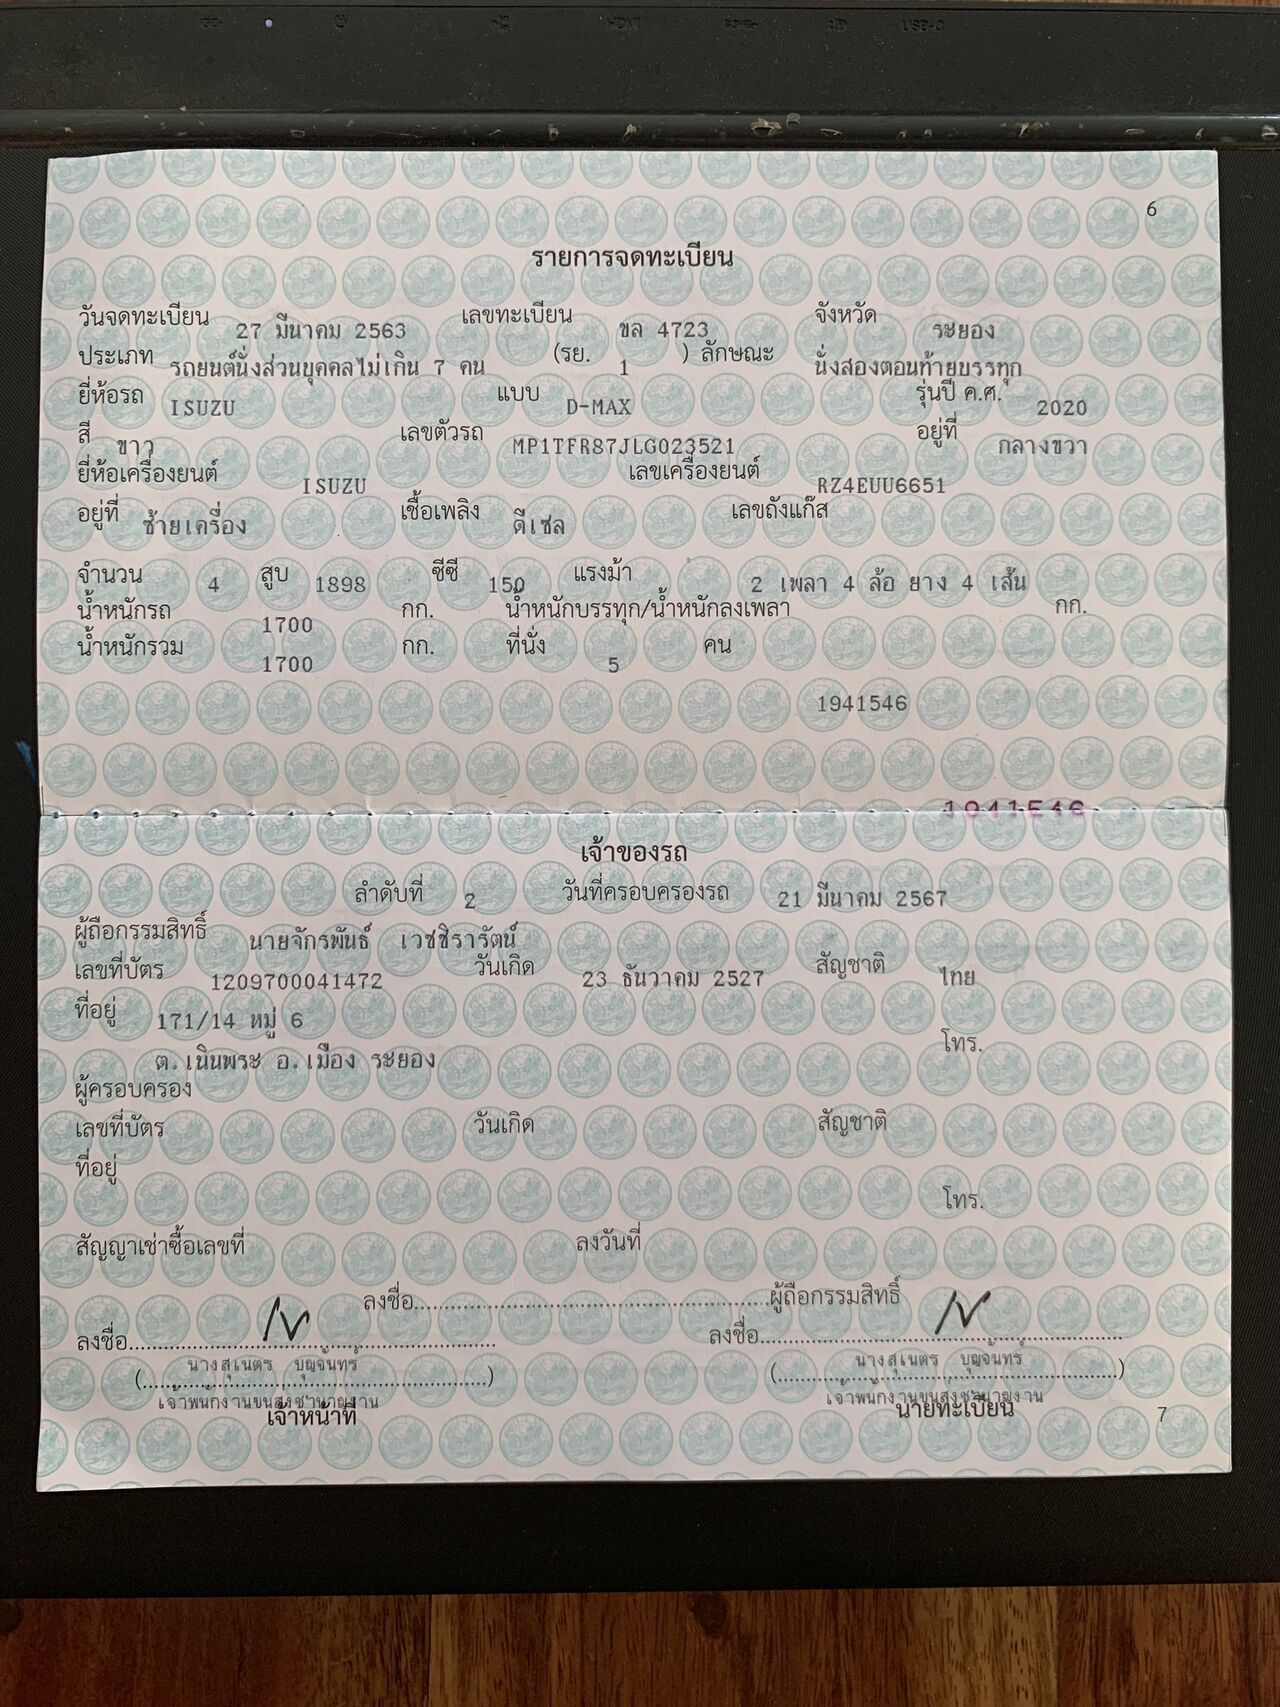 6
รายการจดทะเบียน
วันจดทะเบียน 27 มีนาคม 2563 เลขทะเบียน ขล 4723 จังหวัด ระยอง
ประเภท รถยนต์นั่งส่วนบุคคลไม่เกิน 7 คน (รย. 1 ) ลักษณะ นั่งสองตอนท้ายบรรทุก
ยี่ห้อรถ ISUZU แบบ D-MAX รุ่นปี ค.ศ. 2020
สี ขาว เลขตัวรถ MP1TFR87JLG023521 อยู่ที่ กลางขวา
ยี่ห้อเครื่องยนต์ ISUZU เลขเครื่องยนต์ RZ4EUU6651
อยู่ที่ ซ้ายเครื่อง เชื้อเพลิง ดีเซล เลขถังแก๊ส
จำนวน 4 สูบ 1898 ซีซี 150 แรงม้า 2 เพลา 4 ล้อ ยาง 4 เส้น
น้ำหนักรถ 1700 กก. น้ำหนักบรรทุก/น้ำหนักลงเพลา กก.
น้ำหนักรวม 1700 กก. ที่นั่ง 5 คน
1941546
1941546
เจ้าของรถ
ลำดับที่ 2 วันที่ครอบครองรถ 21 มีนาคม 2567
ผู้ถือกรรมสิทธิ์ นายจักรพันธ์ เวชชิรารัตน์
เลขที่บัตร 1209700041472 วันเกิด 23 ธันวาคม 2527 สัญชาติ ไทย
ที่อยู่ 171/14 หมู่ 6
โทร.
ต.เนินพระ อ.เมือง ระยอง
ผู้ครอบครอง
เลขที่บัตร วันเกิด สัญชาติ
ที่อยู่
โทร.
สัญญาเช่าซื้อเลขที่ ลงวันที่
ลงชื่อ........................................................ผู้ถือกรรมสิทธิ์
ลงชื่อ........................................................ ลงชื่อ........................................................
(นางสุเนตร บุญจันทร์) (นางสุเนตร บุญจันทร์)
เจ้าพนักงานขนส่งชำนาญงาน เจ้าพนักงานขนส่งชำนาญงาน
เจ้าหน้าที่ นายทะเบียน
7